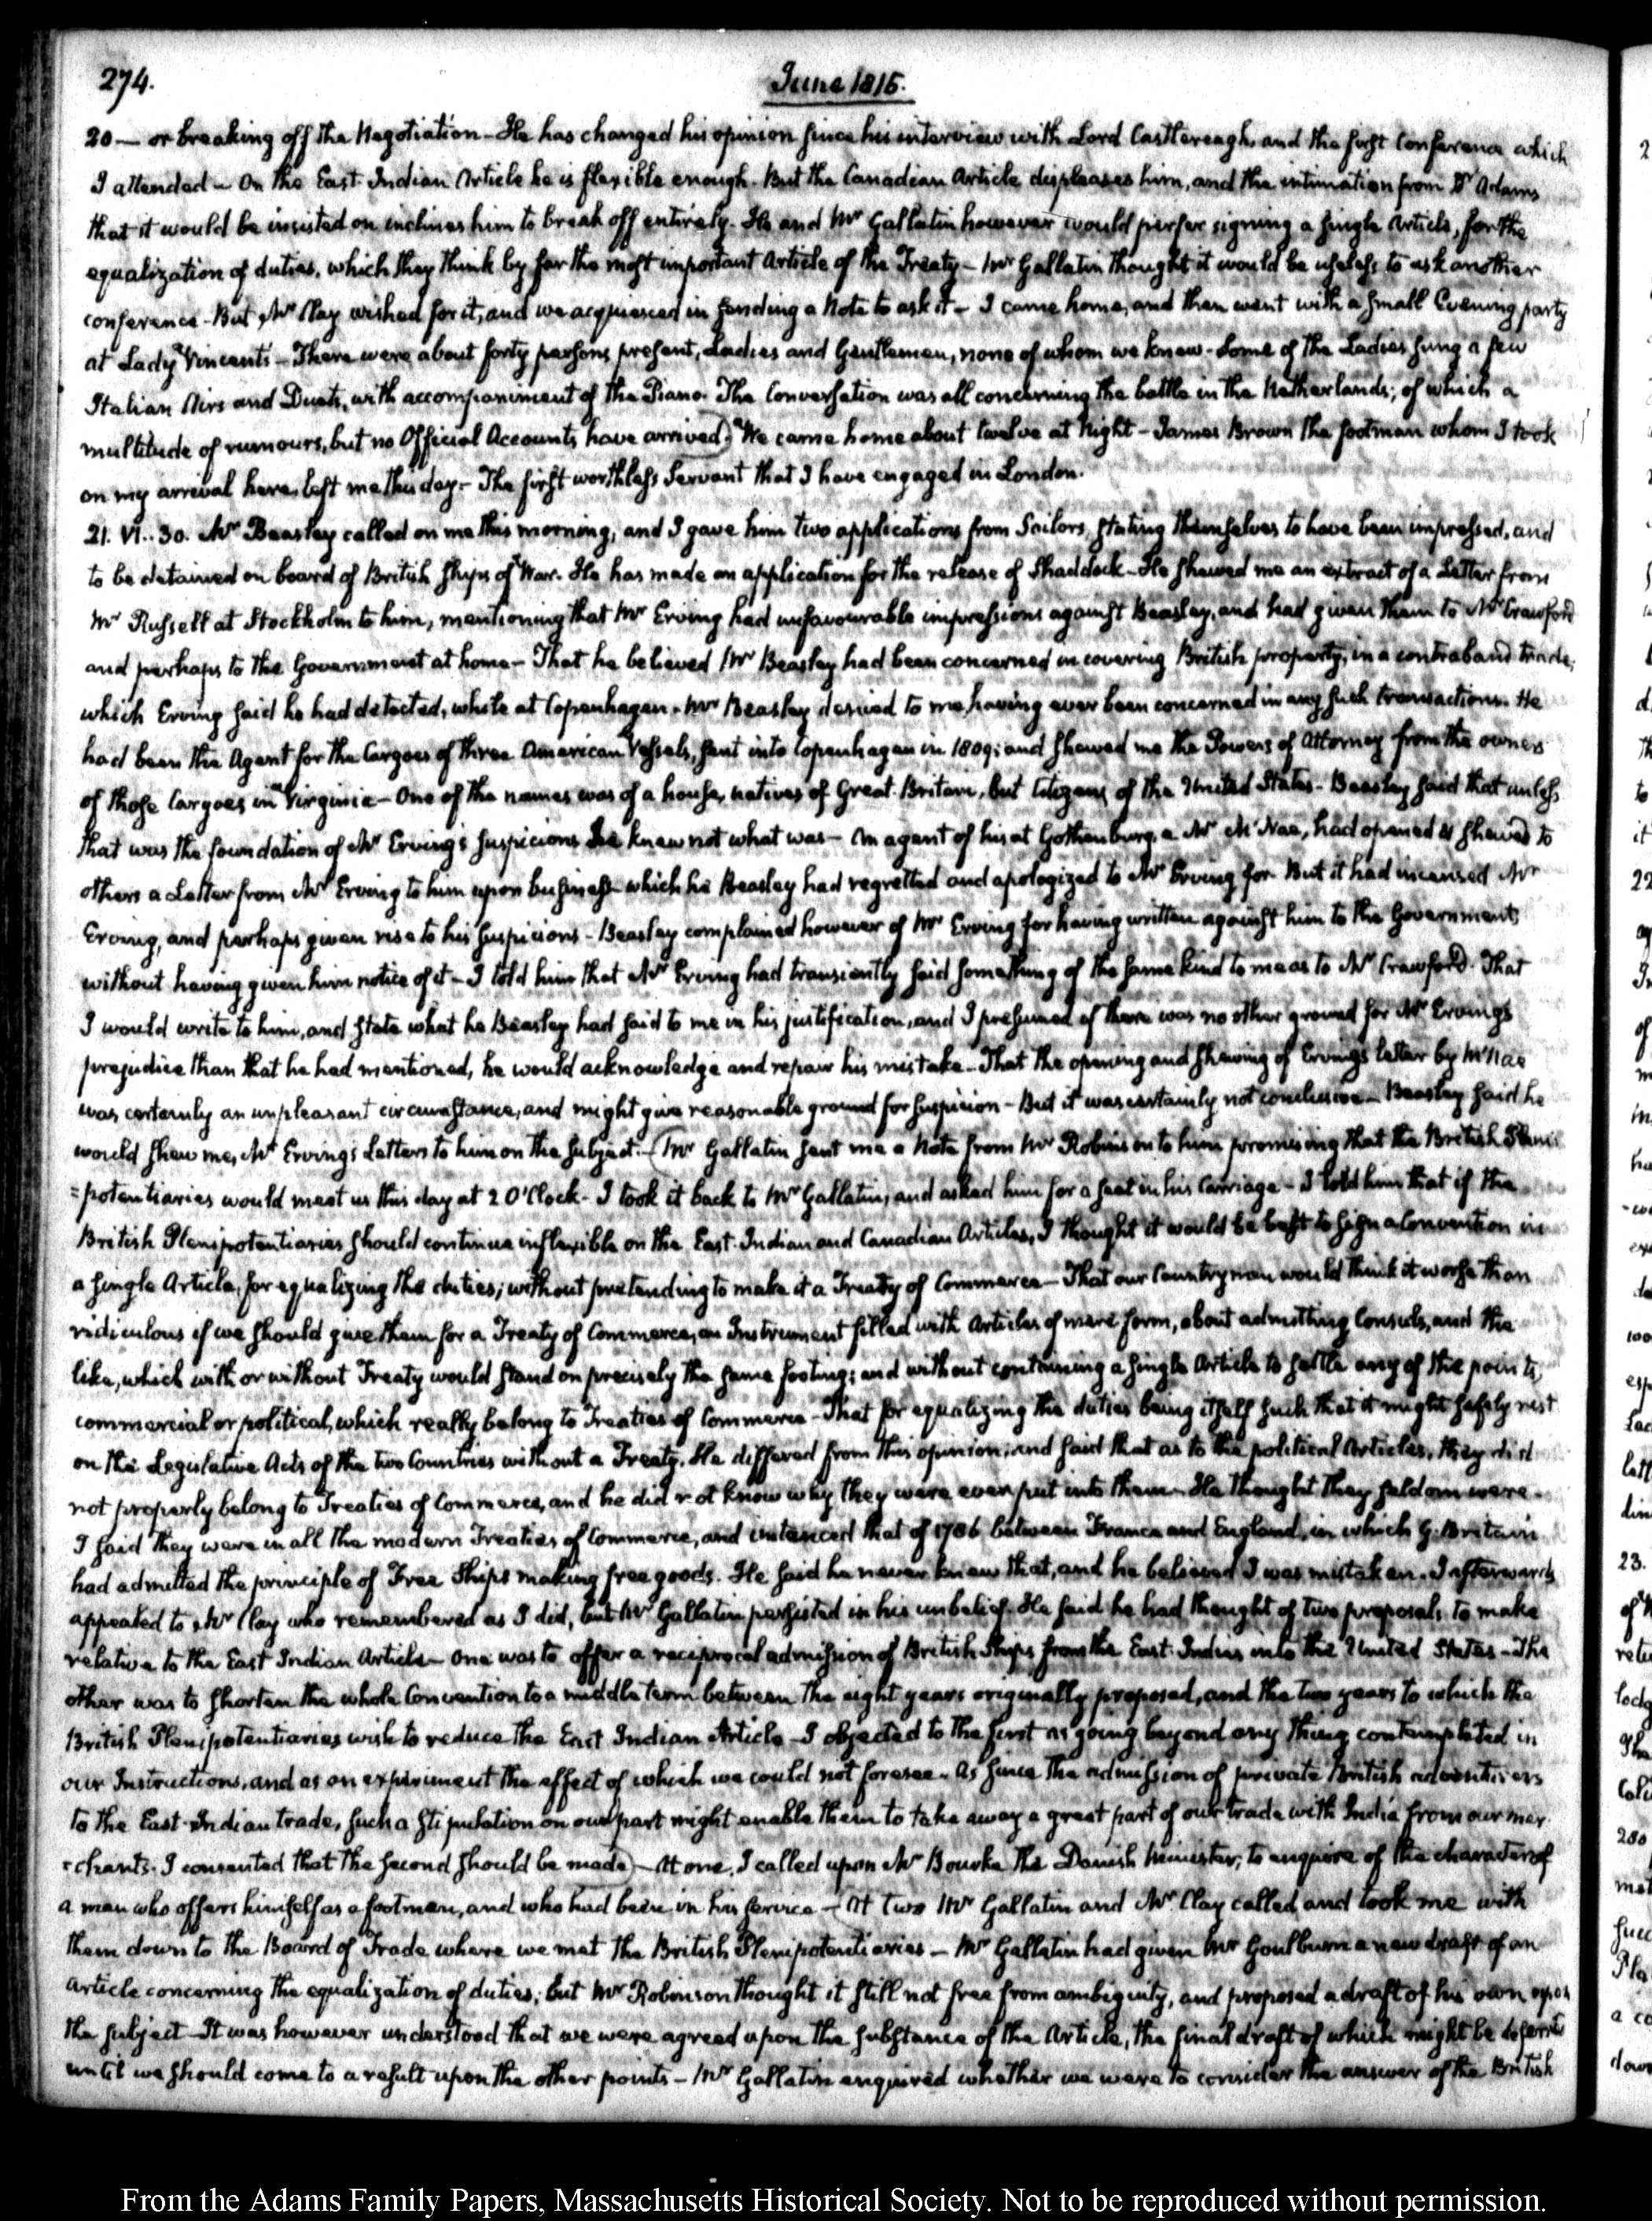 274.
June 1815.
20 — or breaking off the Negotiation - He has changed his opinion since his interview with Lord Castlereagh, and the first Conference which
I attended - On the East-Indian Article he is flexible enough. But the Canadian Article displeases him, and the intimation from Dr. Adams
that it would be insisted on inclines him to break off entirely. He and Mr. Gallatin however would prefer signing a single Article, for the
equalization of duties, which they think by far the most important Article of the Treaty - Mr Gallatin thought it would be useless to ask another
conference - But Mr Clay wished for it, and we acquiesced in sending a Note to ask it - I came home, and then went with a small Evening party
at Lady Vincent's - There were about forty persons present, Ladies and Gentlemen, none of whom we knew. Some of the Ladies sung a few
Italian Airs and Duets, with accompaniment of the Piano. The Conversation was all concerning the battle in the Netherlands; of which a
multitude of rumours, but no Official Accounts have arrived) We came home about twelve at Night - James Brown the footman whom I took
on my arrival here, left me this day - The first worthless Servant that I have engaged in London.
21. VI..30. Mr Beasley called on me this morning, and I gave him two applications from Sailors, stating themselves to have been impressed, and
to be detained on board of British Ships of War. He has made an application for the release of Shaddock - He shewed me an extract of a Letter from
Mr Russell at Stockholm to him, mentioning that Mr Erving had unfavourable impressions against Beasley, and had given them to Mr Crawford
and perhaps to the Government at home - That he believed Mr Beasley had been concerned in covering British property, in a contraband trade,
which Erving said he had detected, while at Copenhagen. Mr Beasley denied to me having ever been concerned in any such transactions. He
had been the Agent for the Cargoes of three American Vessels, sent into Copenhagen in 1809; and shewed me the Powers of Attorney from the owners
of those Cargoes in Virginia - One of the names was of a house, natives of Great-Britain, but Citizens of the United States - Beasley said that unless
that was the foundation of Mr Erving's suspicions he knew not what was - An agent of his at Gothenburg, a Mr McNae, had opened & shewed to
others a Letter from Mr Erving to him upon business which he Beasley had regretted and apologized to Mr Erving for. But it had incensed Mr
Erving, and perhaps given rise to his suspicions - Beasley complained however of Mr Erving for having written against him to the Government,
without having given him notice of it - I told him that Mr Erving had transiently said something of the same kind to me as to Mr Crawford. That
I would write to him, and state what he Beasley had said to me in his justification, and I presumed if there was no other ground for Mr Ervings
prejudice than that he had mentioned, he would acknowledge and repair his mistake - That the opening and shewing of Erving's letter by McNae
was certainly an unpleasant circumstance, and might give reasonable ground for suspicion - But it was certainly not conclusive - Beasley said he
would shew me, Mr Erving's Letters to him on the subject. - (Mr Gallatin sent me a Note from Mr Robinson to him promising that the British Pleni
=potentiaries would meet us this day at 2 O'Clock - I took it back to Mr Gallatin, and asked him for a seat in his Carriage - I told him that if the
British Plenipotentiaries should continue inflexible on the East-Indian and Canadian Articles, I thought it would be best to sign a Convention in
a single Article, for equalizing the duties; without pretending to make it a Treaty of Commerce - That our Countrymen would think it worse than
ridiculous if we should give them for a Treaty of Commerce, an Instrument filled with Articles of mere form, about admitting Consuls, and the
like, which with or without Treaty would stand on precisely the same footing; and without containing a single Article to settle any of the points,
commercial or political, which really belong to Treaties of Commerce - That for equalizing the duties being itself such that it might safely rest
on the Legislative Acts of the two Countries without a Treaty. He differed from this opinion; and said that as to the political Articles, they did
not properly belong to Treaties of Commerce, and he did not know why they were ever put into them - He thought they seldom were -
I said they were in all the modern Treaties of Commerce, and instanced that of 1786 between France and England, in which G. Britain
had admitted the principle of Free Ships making free goods. He said he never knew that, and he believed I was mistaken. I afterwards
appealed to Mr Clay who remembered as I did, but Mr Gallatin persisted in his unbelief. He said he had thought of two proposals to make
relative to the East Indian Article - One was to offer a reciprocal admission of British Ships from the East-Indies into the United States - The
other was to shorten the whole Convention to a middle term between the eight years originally proposed, and the two years to which the
British Plenipotentiaries wish to reduce the East Indian Article - I objected to the first as going beyond any thing contemplated in
our Instructions, and as an experiment the effect of which we could not foresee. As since the admission of private British adventurers
to the East-Indian trade, such a stipulation on our part might enable them to take away a great part of our trade with India from our mer-
-chants. I consented that the second should be made) - At one, I called upon Mr Bourke the Danish Minister, to enquire of the character of
a man who offers himself as a footman, and who had been in his service - (At two Mr Gallatin and Mr Clay called and took me with
them down to the Board of Trade where we met the British Plenipotentiaries - Mr Gallatin had given Mr Goulburn a new draft of an
article concerning the equalization of duties; but Mr Robinson thought it still not free from ambiguity, and proposed a draft of his own upon
the subject - It was however understood that we were agreed upon the substance of the Article, the final draft of which might be deferred
until we should come to a result upon the other points - Mr Gallatin enquired whether we were to consider the answer of the British
From the Adams Family Papers, Massachusetts Historical Society. Not to be reproduced without permission.